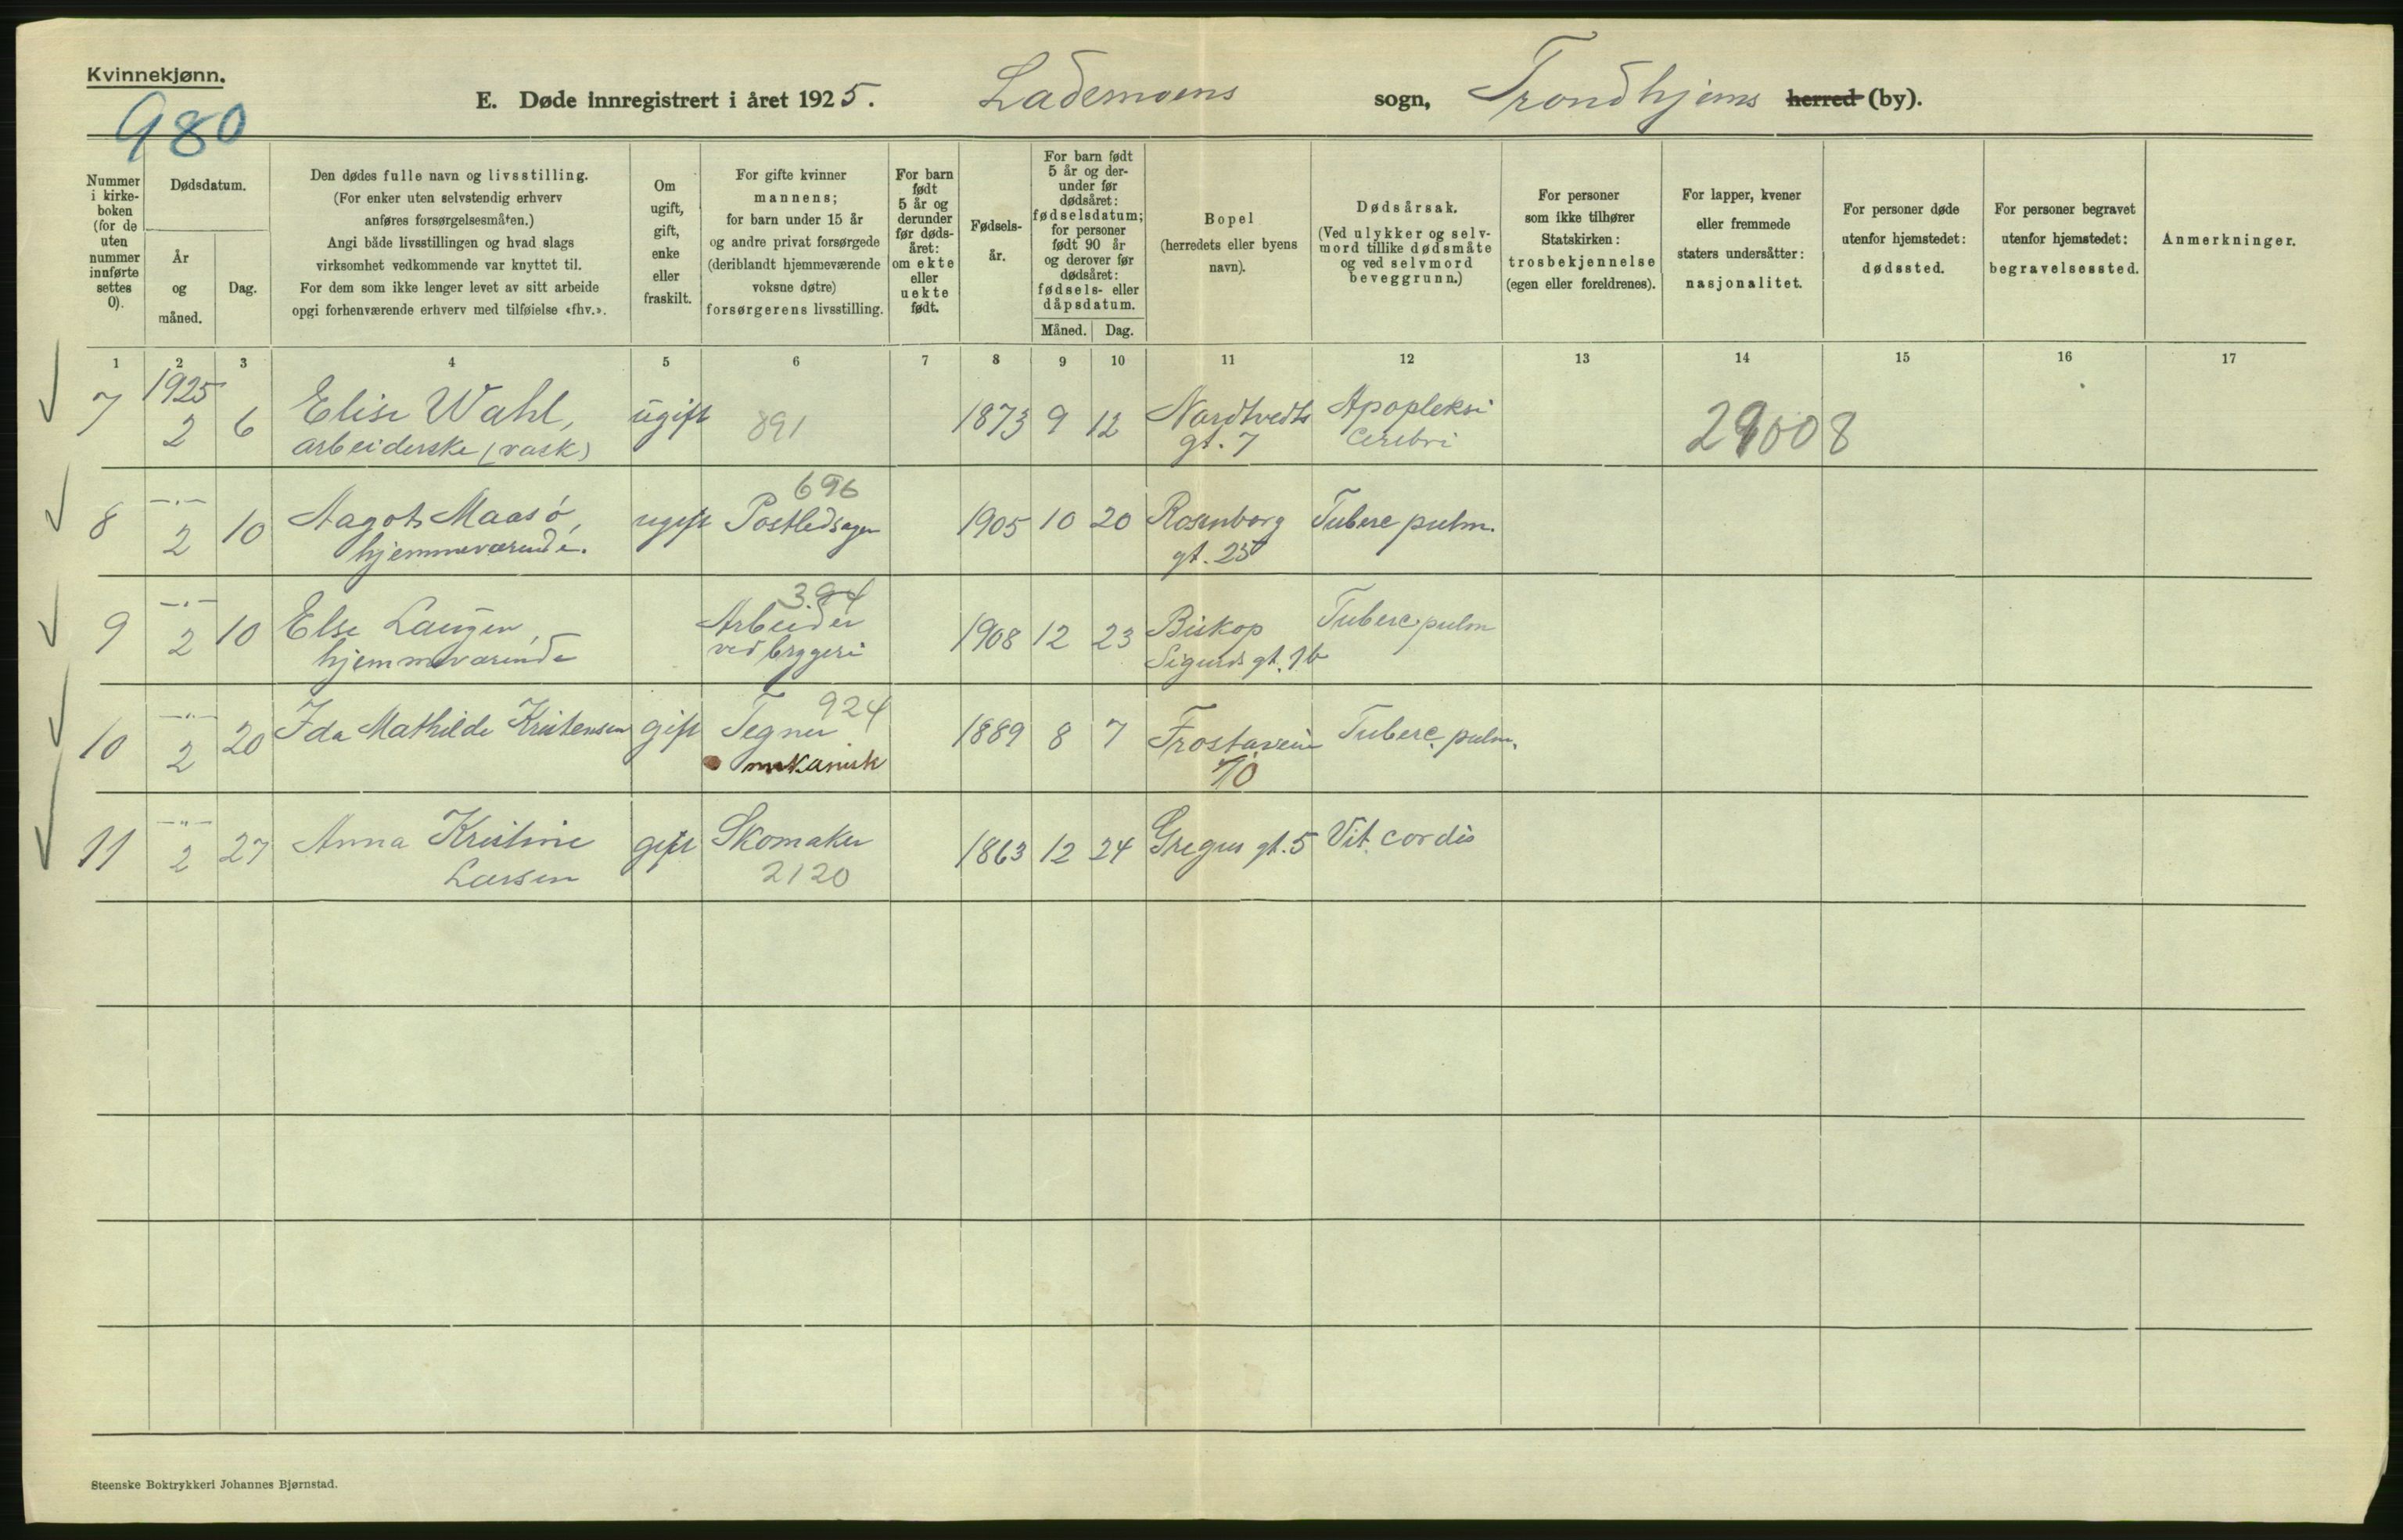 Kvinnekjønn.
980
E. Døde innregistrert i året 1925. Lademoens sogn, Trondhjems herred (by).
Nummer i kirkeboken (for de uten nummer innførte settes 0).
Dødsdatum.
År og måned.
Dag.
Den dødes fulle navn og livsstilling.
(For enker uten selvstendig erhverv
anføres forsørgelsesmåten.)
Angi både livsstillingen og hvad slags
virksomhet vedkommende var knyttet til.
For dem som ikke lenger levet av sitt arbeide
opgi forhenværende erhverv med tilføielse «fhv.».
Om ugift, gift, enke eller fraskilt.
For gifte kvinner
mannens;
for barn under 15 år
og andre privat forsørgede
(deriblandt hjemmeværende
voksne døtre)
forsørgerens livsstilling.
For barn født 5 år og derunder før dødsåret: om ekte eller uekte født.
Fødselsår.
For barn født 5 år og derunder før dødsåret: fødselsdatum; for personer født 90 år og derover før dødsåret: fødsels- eller dåpsdatum.
Måned. Dag.
Bopel
(herredets eller byens
navn).
Dødsårsak.
(Ved ulykker og selvmord tillike dødsmåte
og ved selvmord
beveggrunn.)
For personer
som ikke tilhører
Statskirken:
trosbekjennelse
(egen eller foreldrenes).
For lapper, kvener
eller fremmede
staters undersåtter:
nasjonalitet.
For personer døde
utenfor hjemstedet:
dødssted.
For personer begravet
utenfor hjemstedet:
begravelsessted.
Anmerkninger.
1 2 3 4 5 6 7 8 9 10 11 12 13 14 15 16 17
7 1925 2 6 Elise Wahl, arbeiderske (vask) ugift 891 1873 9 12 Nardtvedts gt. 7 Apopleksi cerebri 29008
8 —"— 2 10 Aagot Maasø, hjemmeværende. ugift 696 Postledsager 1905 10 20 Rosenborg gt. 25 Tuberc pulm.
9 —"— 2 10 Else Laugen, hjemmeværende 394 Arbeider ved bryggeri 1908 12 23 Biskop Sigurds gt. 1b Tuberc pulm
10 —"— 2 20 Ida Mathilde Kristensen gift 924 Tegner mekanisk 1889 8 7 Frostaveien 10 Tuberc. pulm.
11 —"— 2 27 Anna Kristine Larsen gift Skomaker 2120 1863 12 24 Gregus gt. 5 Vit. cordis
Steenske Boktrykkeri Johannes Bjørnstad.